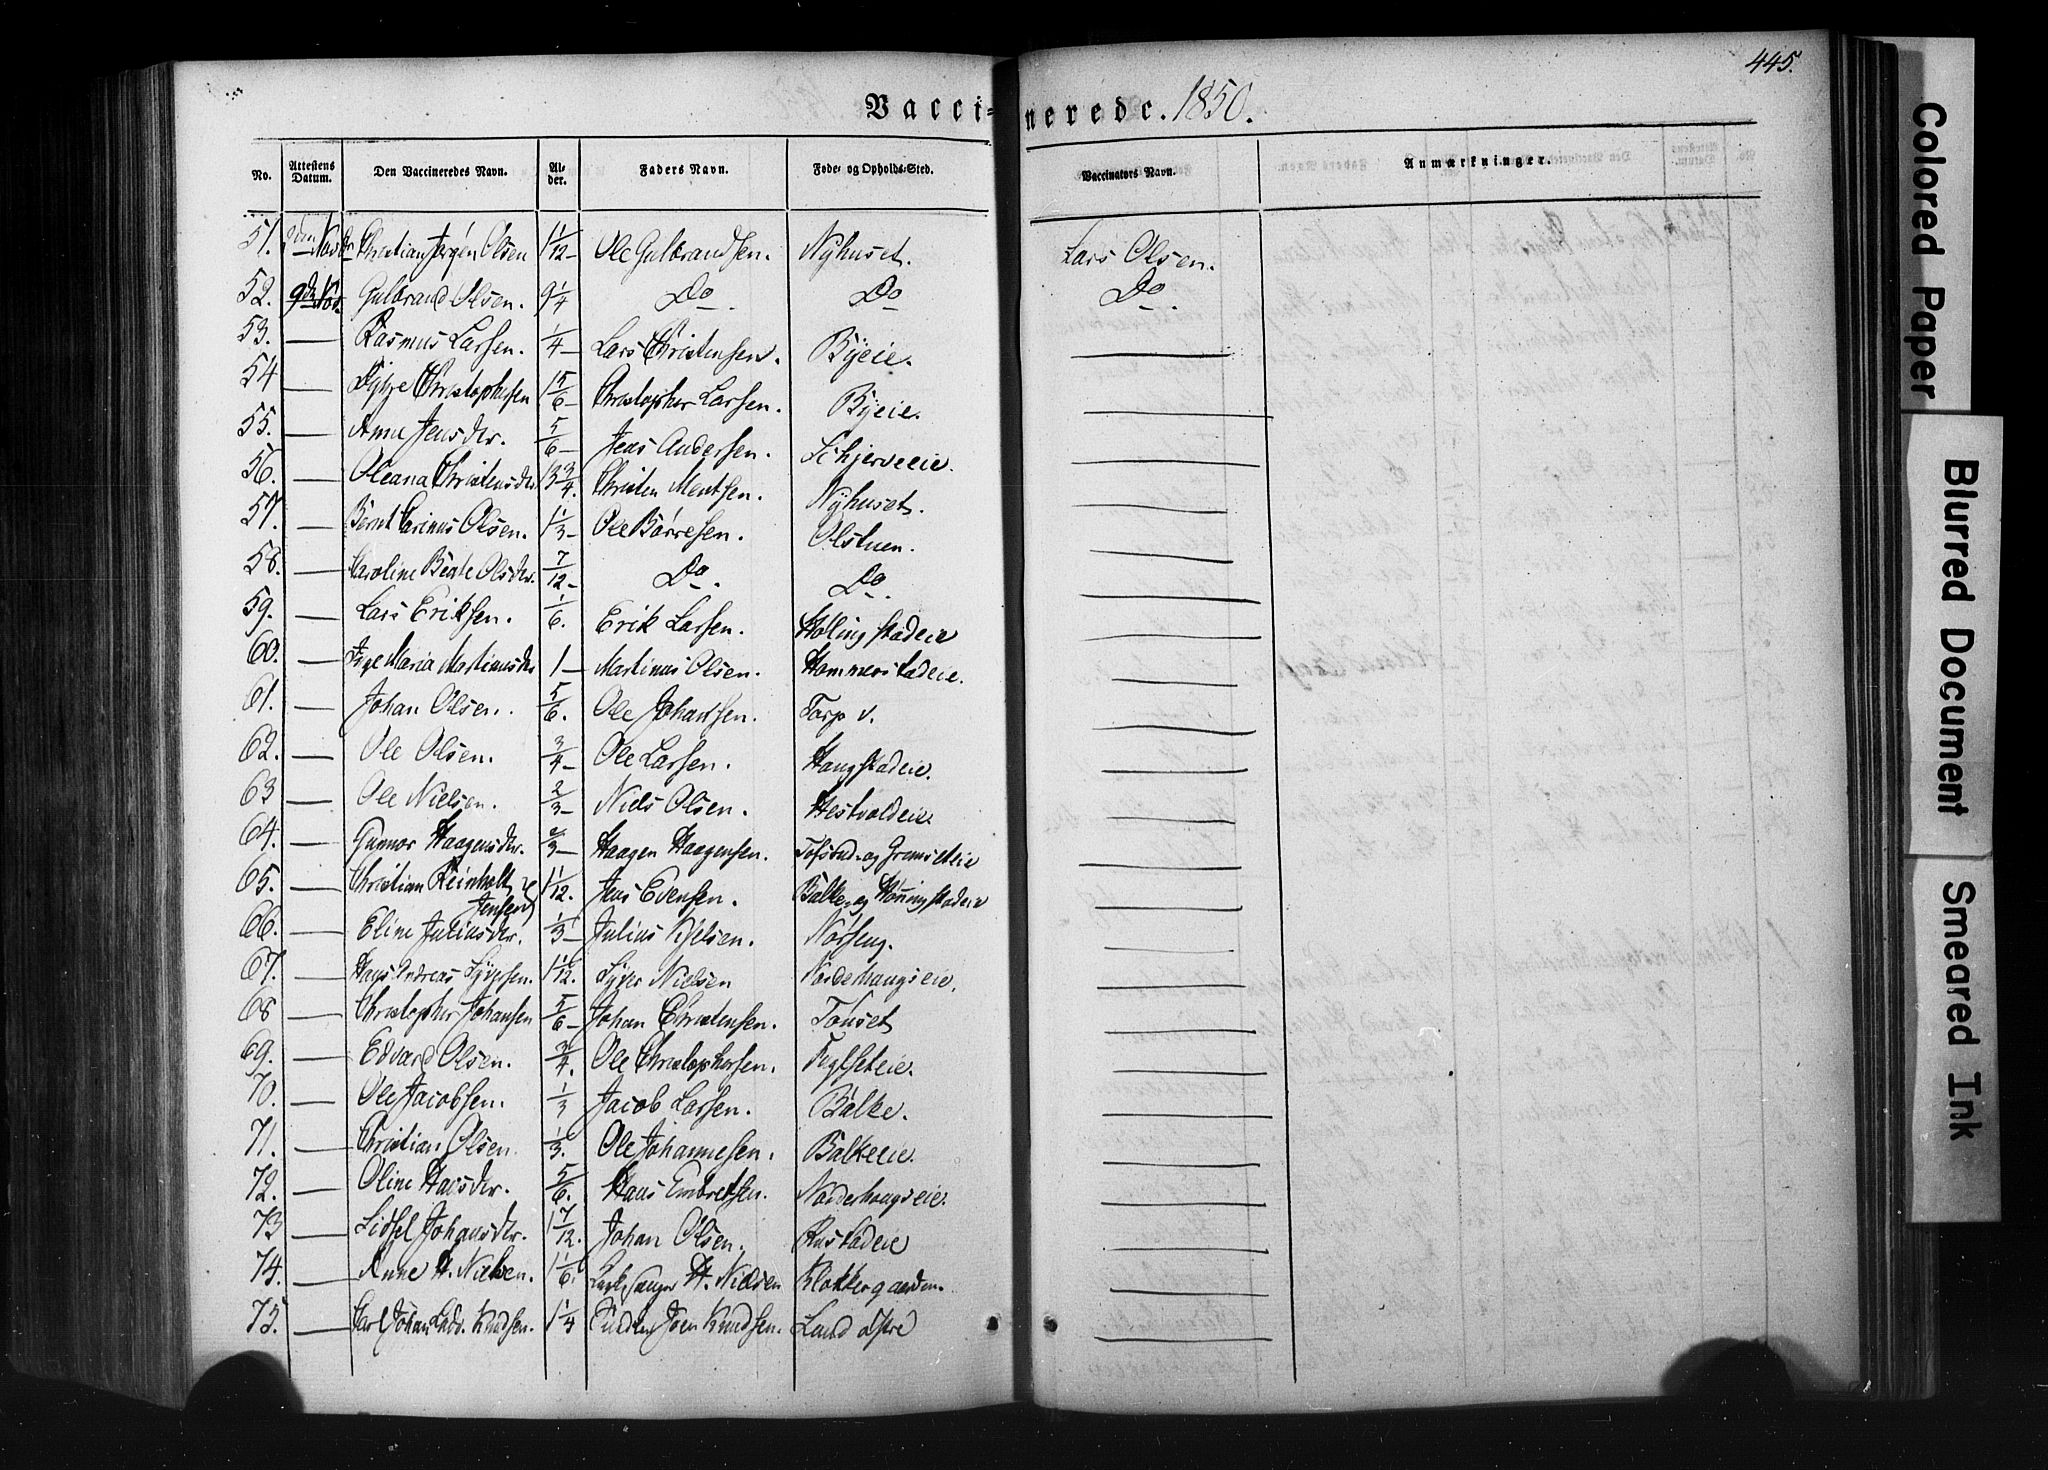 445.
Vacci- nerede. 1850.
No. Attestens Datum. Den Vaccineredes Navn. Al- der. Faders Navn. Føde- og Opholds-Sted. Vaccinators Navn. Anmærkninger.
51. Christian Jørgen Olsen 1 1/12 - Ole Gulbrandsen. Nyhuset. Lars Olsen.
52. 9de Nov. Gulbrand Olsen. 9 1/4 Do. Do Do.
53. — Rasmus Larsen. 1/4 - Lars Christensen. Byeie. —
54 — Christophersen 1 5/6 - Christopher Larsen. Byeie. —
55. — Anne Jensdtr. 5/6 - Jens Andersen. Schjerveeie. —
56. — Oleana Christensdtr 13 3/4. Christen Mentsen. Nyhuset. —
57. — Bernt Carinus Olsen. 1 1/3 - Ole Børresen. Olstuen. —
58. — Caroline Beate Olsdtr. 7/12 - Do. Do. —
59. — Lars Eriksen. 1/6. Erik Larsen. —
60. — Maria Martinusdtr 1 — Martinus Olsen. Hammerstadeie. —
61. — Johan Olsen. 5/6. Ole Johansen. Torp v. —
62. — Ole Olsen. 3/4 - Ole Larsen. Haugstadeie. —
63 — Ole Nielsen. 2/3 - Niels Olsen. Hestvoldeie. —
64. — Gunnor Haagensdtr. 2/3 - Haagen Haagensen. —
65. — Christian Reinholt 1 1/12. Jens Evensen. Balke- og —
Jensen
66. — Eline Juliusdtr. 1/3 - Julius Kjelsen. Nørseng. —
67. — Hans Andreas 1 1/12. Nielsen Norderhaugseie. —
68 — Christopher Johansen 5/6 - Johan Christensen. Tonset —
69. — Edvard Olsen. 3/4. Ole Christophersen. —
70. — Ole Jacobsen. 1/3 Jacob Larsen. Balke. —
71. — Christian Olsen. 1/3. Ole Johannesen. Balkeeie. —
72. — Oline Hansdtr. 5/6. Hans Embretsen. Norderhaugseie. —
73 — Johansdtr. 1 7/12. Johan Olsen. Rustadeie —
74. — Anne H. Nielsen. 1 1/6. Kirkesanger H. Nielsen Klokkergaarden. —
75. — Carl Johan Ludv. Knudsen. 1 1/4 Joen Knudsen. Lund østre —
Colored Paper
Blurred Document
Smeared Ink